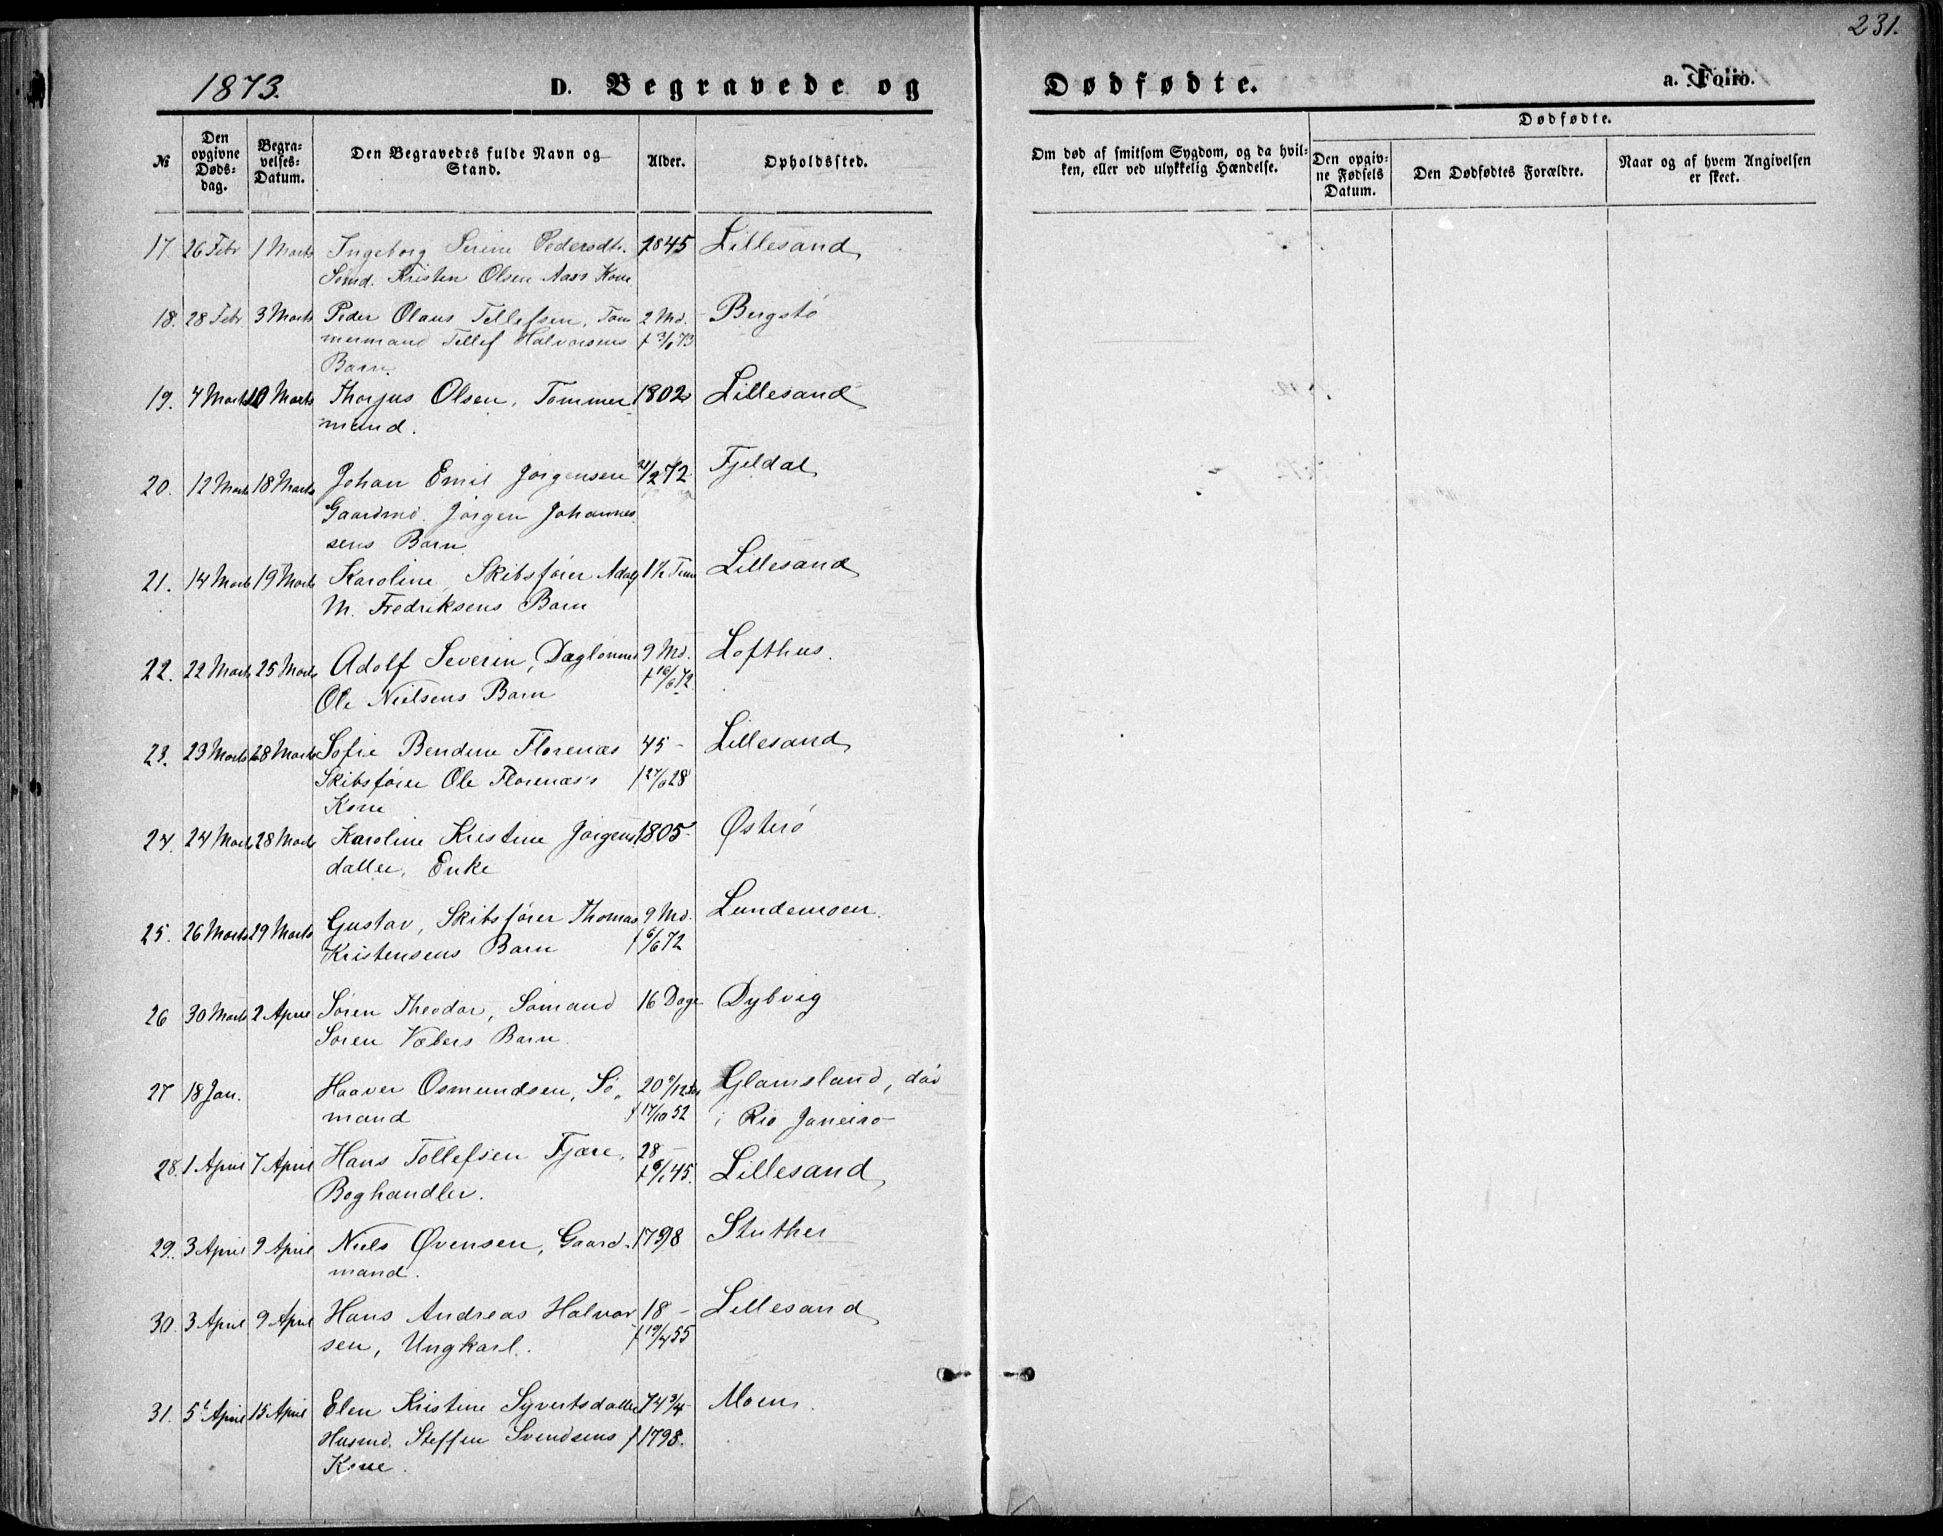 231.
1873. D. Begravede og Dødfødte. a. Folio.
№ Den opgivne Døds-dag. Begra-velses-Datum. Den Begravedes fulde Navn og Stand. Alder. Opholdssted.
Om død af smitsom Sygdom, og da hvil-ken, eller ved ulykkelig Hændelse. Dødfødte. Den opgiv-ne Fødsels Datum. Den Dødfødtes Forældre. Naar og af hvem Angivelsen er skeet.
17. 26 Febr 1 Marts Ingeborg Serine Pedersdtr. 1845 Lillesand
Sømd. Kristen Olsen Aass Kone
18. 28 Febr 3 Marts Peder Olaus Tellefsen, Tøm 2 Md. Bergstø
mermand Tellef Halvorsens
Barn.
19. 4 Marts 10 Marts Thorjus Olsen, Tømmer 1802 Lillesand
mand.
20. 12 Marts 18 Marts Johan Emil Jørgensen 21/272 Fjeldal
Gaardmd. Jørgen Johannes
sens Barn
21. 14 Marts 19 Marts Karoline, Skibsfører Adolf 1½ Time Lillesand
M. Fredriksens Barn
22. 22 Marts 25 Marts Adolf Severin, Daglønner 9 Md. Lofthus.
Ole Nielsens Barn f 16/672
23. 23 Marts 28 Marts Sofie Bendine Florenæs 45 - Lillesand
Skibsfører Ole Florenæs's f 27/628
Kone
24. 24 Marts 28 Marts Karoline Kristine Jørgens 1805 Østerø
datter, Enke
25. 26 Marts 29 Marts Gustav, Skibsfører Thomas 9 Md. Lundemoen.
Kristensens Barn f 6/672
26 30 Marts 2 April Søren Theodor, Sømand 16 Dage Dybvig
Søren Væbers Barn
27 18 Jan. Haaver Osmundsen, Sø 20 Glamsland, død
mand f 17/10 52 i Rio Janeiro
28. 1 April 7 April Hans Tollefsen Fjære, 28 - Lillesand
Boghandler. f 6/1 45.
29. 3 April 9 April Niels Øvensen, Gaard 1798 Stuther
mand.
30. 3 April 9 April Hans Andreas Halvor 18 - Lillesand
sen, Ungkarl. f 19/4 55
31. 5 April 15 April Elen Kristine Syvertsdatter 74¾ Moen.
Husmd. Steffen Svendsens f 1798.
Kone.